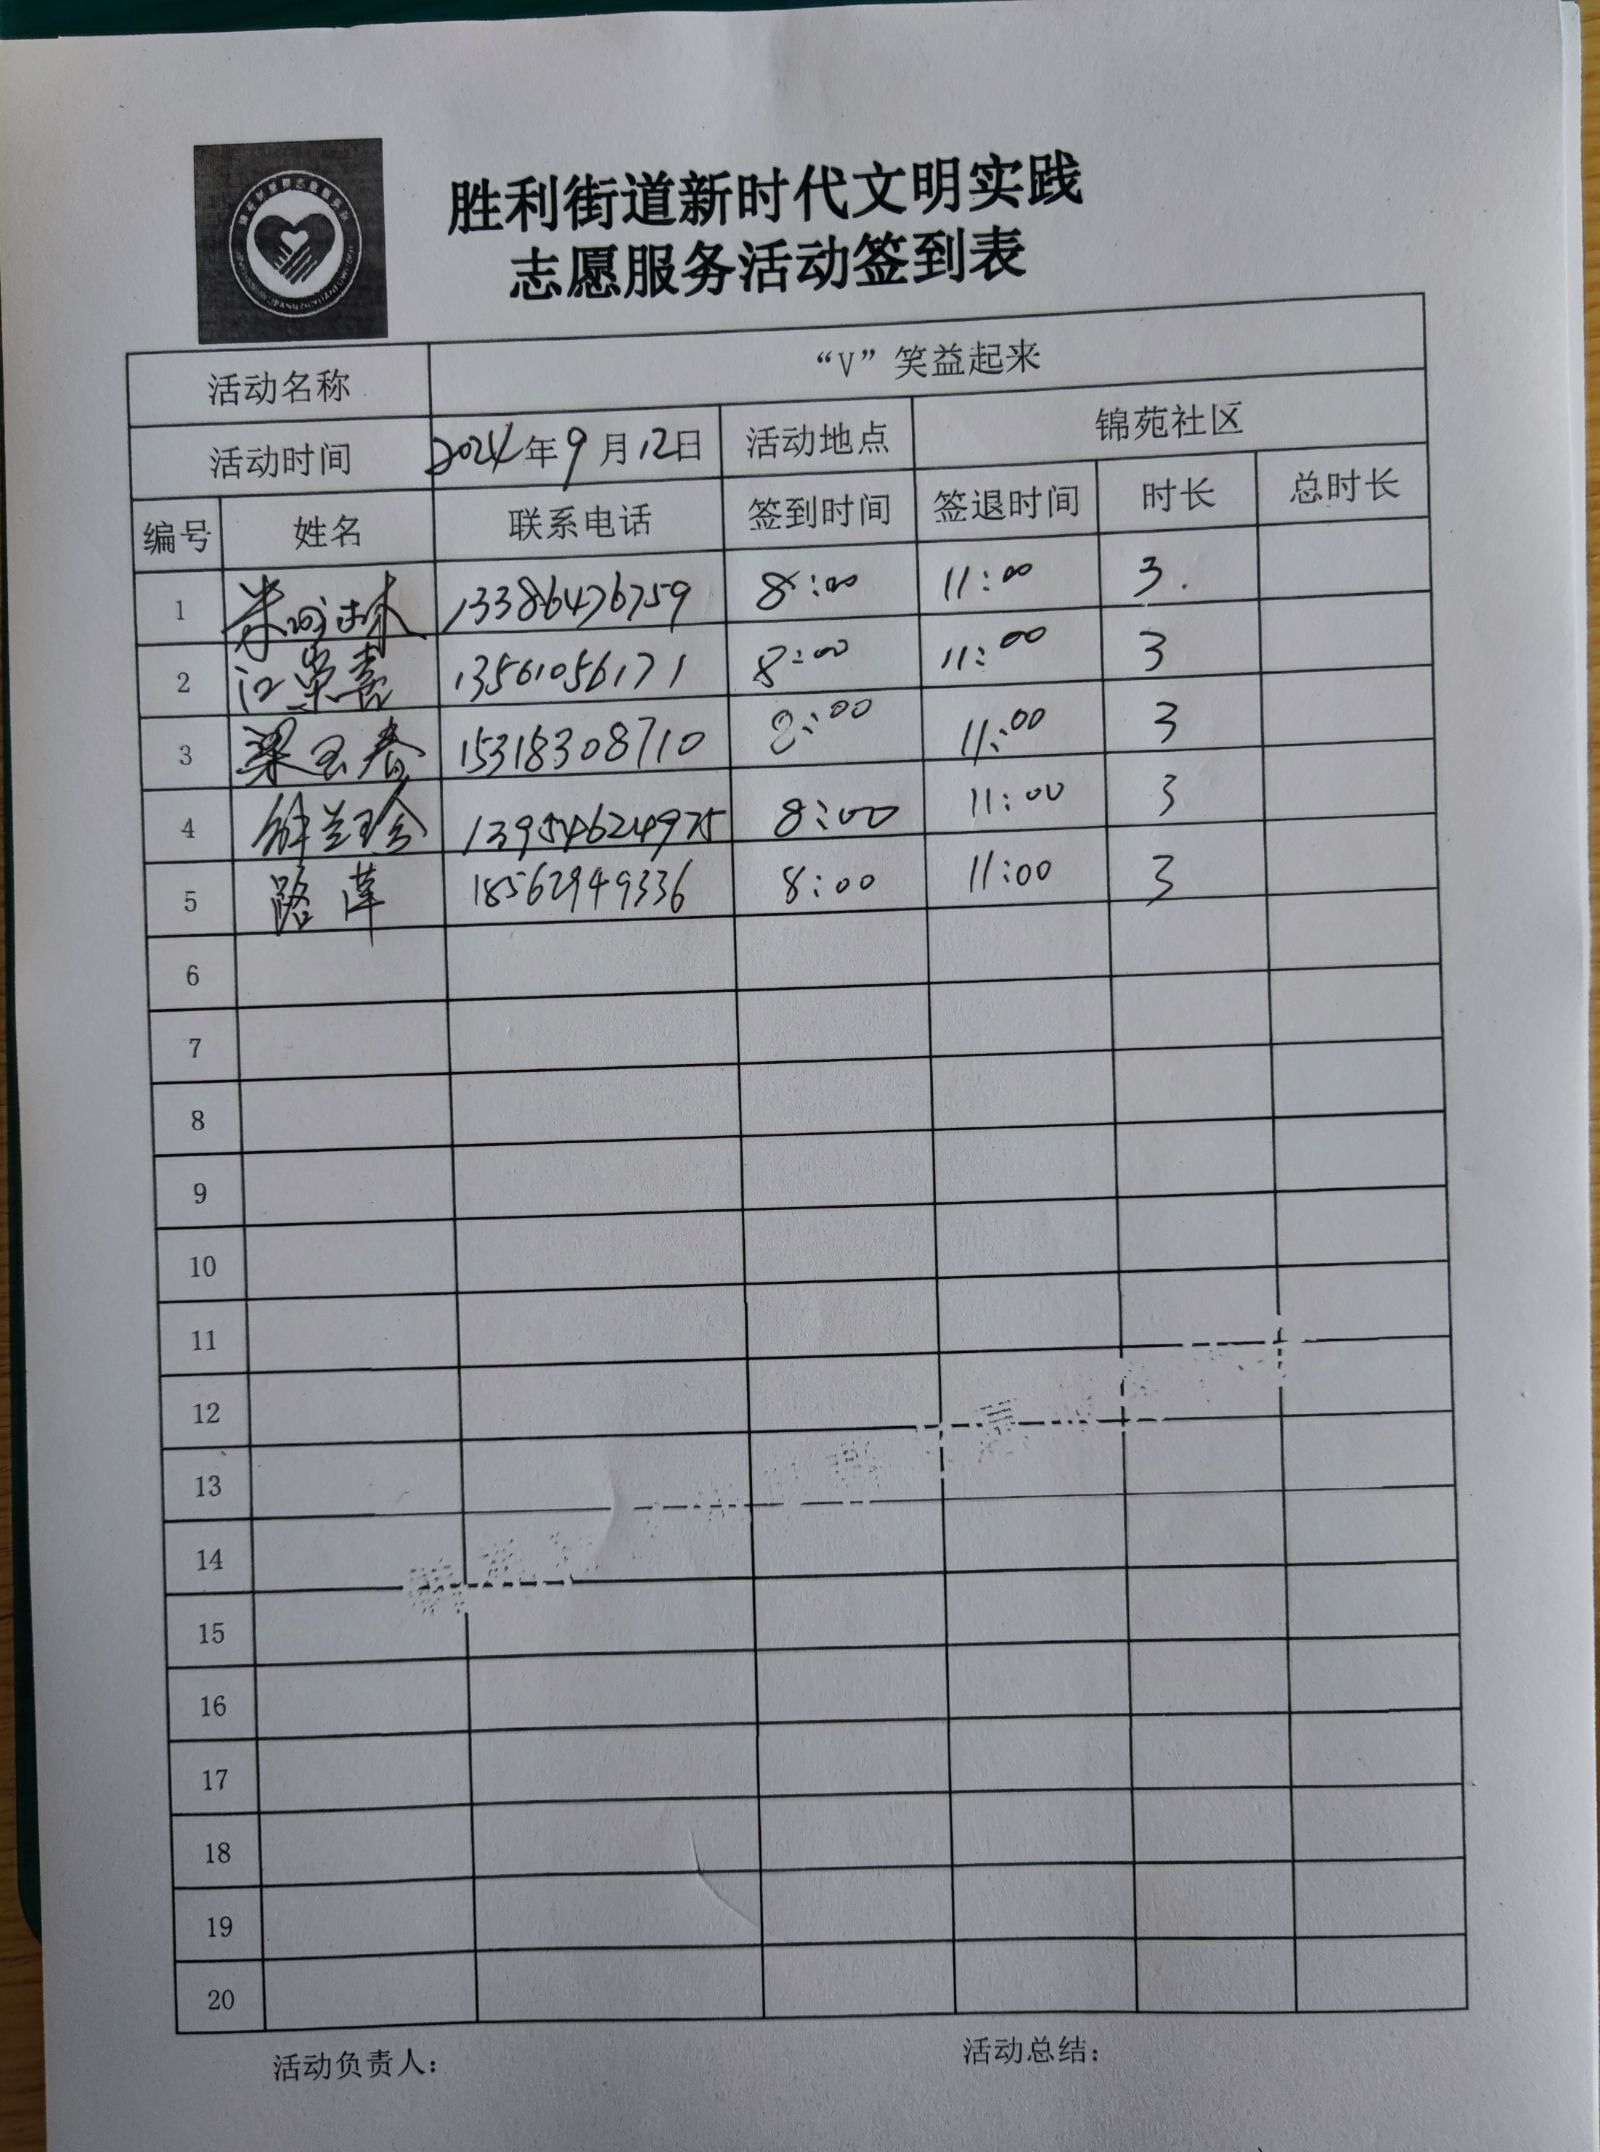 胜利街道新时代文明实践
志愿服务活动签到表
活动名称 “V”笑益起来
活动时间 2024年9月12日 活动地点 锦苑社区
编号 姓名 联系电话 签到时间 签退时间 时长 总时长
1 13386476759 8:00 11:00 3.
2 江荣喜 13561056171 8:00 11:00 3
3 梁玉春 15318308710 8:00 11:00 3
4 解兰珍 13954624975 8:00 11:00 3
5 路莲 18562949336 8:00 11:00 3
6
7
8
9
10
11
12
13
14
15
16
17
18
19
20
活动负责人: 活动总结: